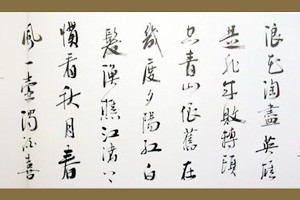 浪花淘盡英雄
是非成敗轉頭
空青山依舊在
幾度夕陽紅白
髮漁樵江渚上
慣看秋月春
風一壺濁酒喜